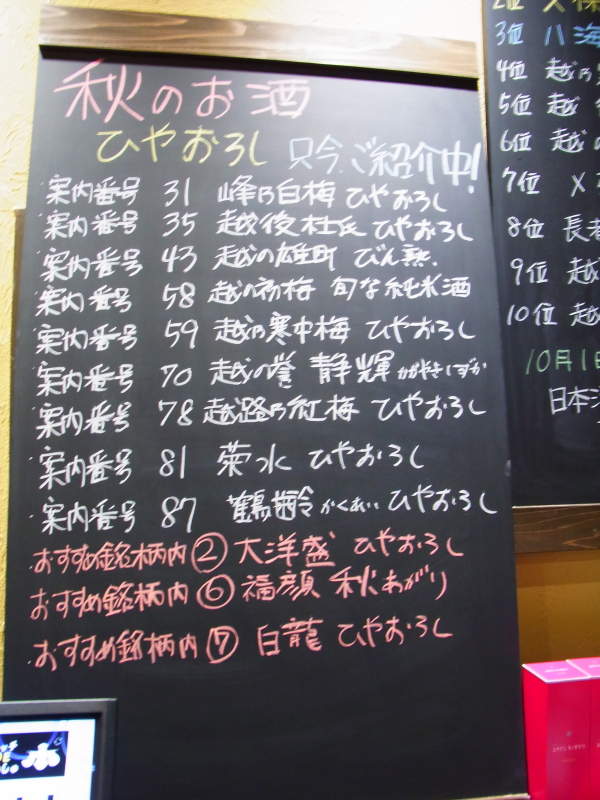 秋のお酒
ひやおろし 只今ご紹介中!
案内番号 31 峰乃白梅 ひやおろし
案内番号 35 越後杜氏 ひやおろし
案内番号 43 越の雄町 びん熟.
案内番号 58 越の初梅 旬な純米酒
案内番号 59 越乃寒中梅 ひやおろし
案内番号 70 越の誉 静輝 かがやきしずか
案内番号 78 越路乃紅梅 ひやおろし
案内番号 81 菊水 ひやおろし
案内番号 87 鶴齢 かくれい ひやおろし
おすすめ銘柄内 ② 大洋盛 ひやおろし
おすすめ銘柄内 ⑥ 福顔 秋あがり
おすすめ銘柄内 ⑦ 白龍 ひやおろし
2位
3位 八海
4位 越乃
5位 越
6位 越の
7位
8位 長者
9位 越
10位 越
10月1日
日本